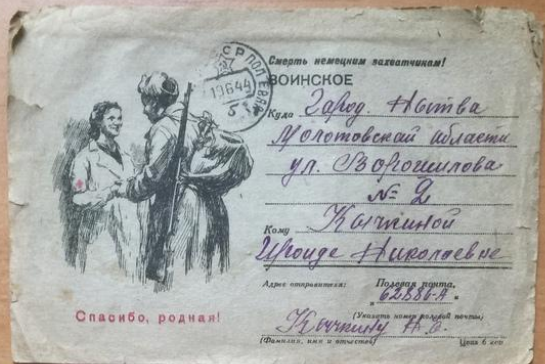 Смерть немецким захватчикам!
ВОИНСКОЕ
Куда Город. Нытва
Молотовская области
ул. Ворошилова
№ 2
Кому Кычкиной
Ираиде Николаевне
Адрес отправителя: Полевая почта.
62886-А
(Указать номер полевой почты)
Кычкину А.
(Фамилия, имя и отчество)
Цена 6 коп
Спасибо, родная!
ПОЛЕВАЯ
19644